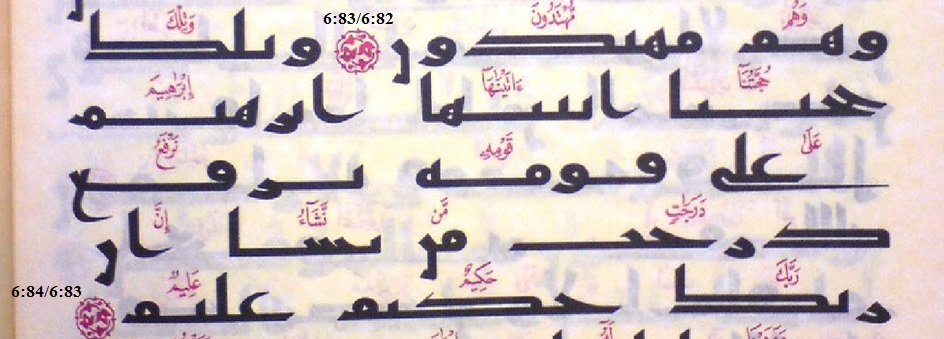 6:83/6:82
وَهُم مُّهْتَدُونَ وَتِلْكَ
وهم مهتدون وتلك
حُجَّتُنَآ ءَاتَيْنَٰهَآ إِبْرَٰهِيمَ
حجتنا اتينها ابرهيم
عَلَىٰ قَوْمِهِۦ نَرْفَعُ
على قومه نرفع
دَرَجَٰتٍ مَّن نَّشَآءُ إِنَّ
درجت من نشا ان
رَبَّكَ حَكِيمٌ عَلِيمٌ
ربك حكيم عليم
6:84/6:83